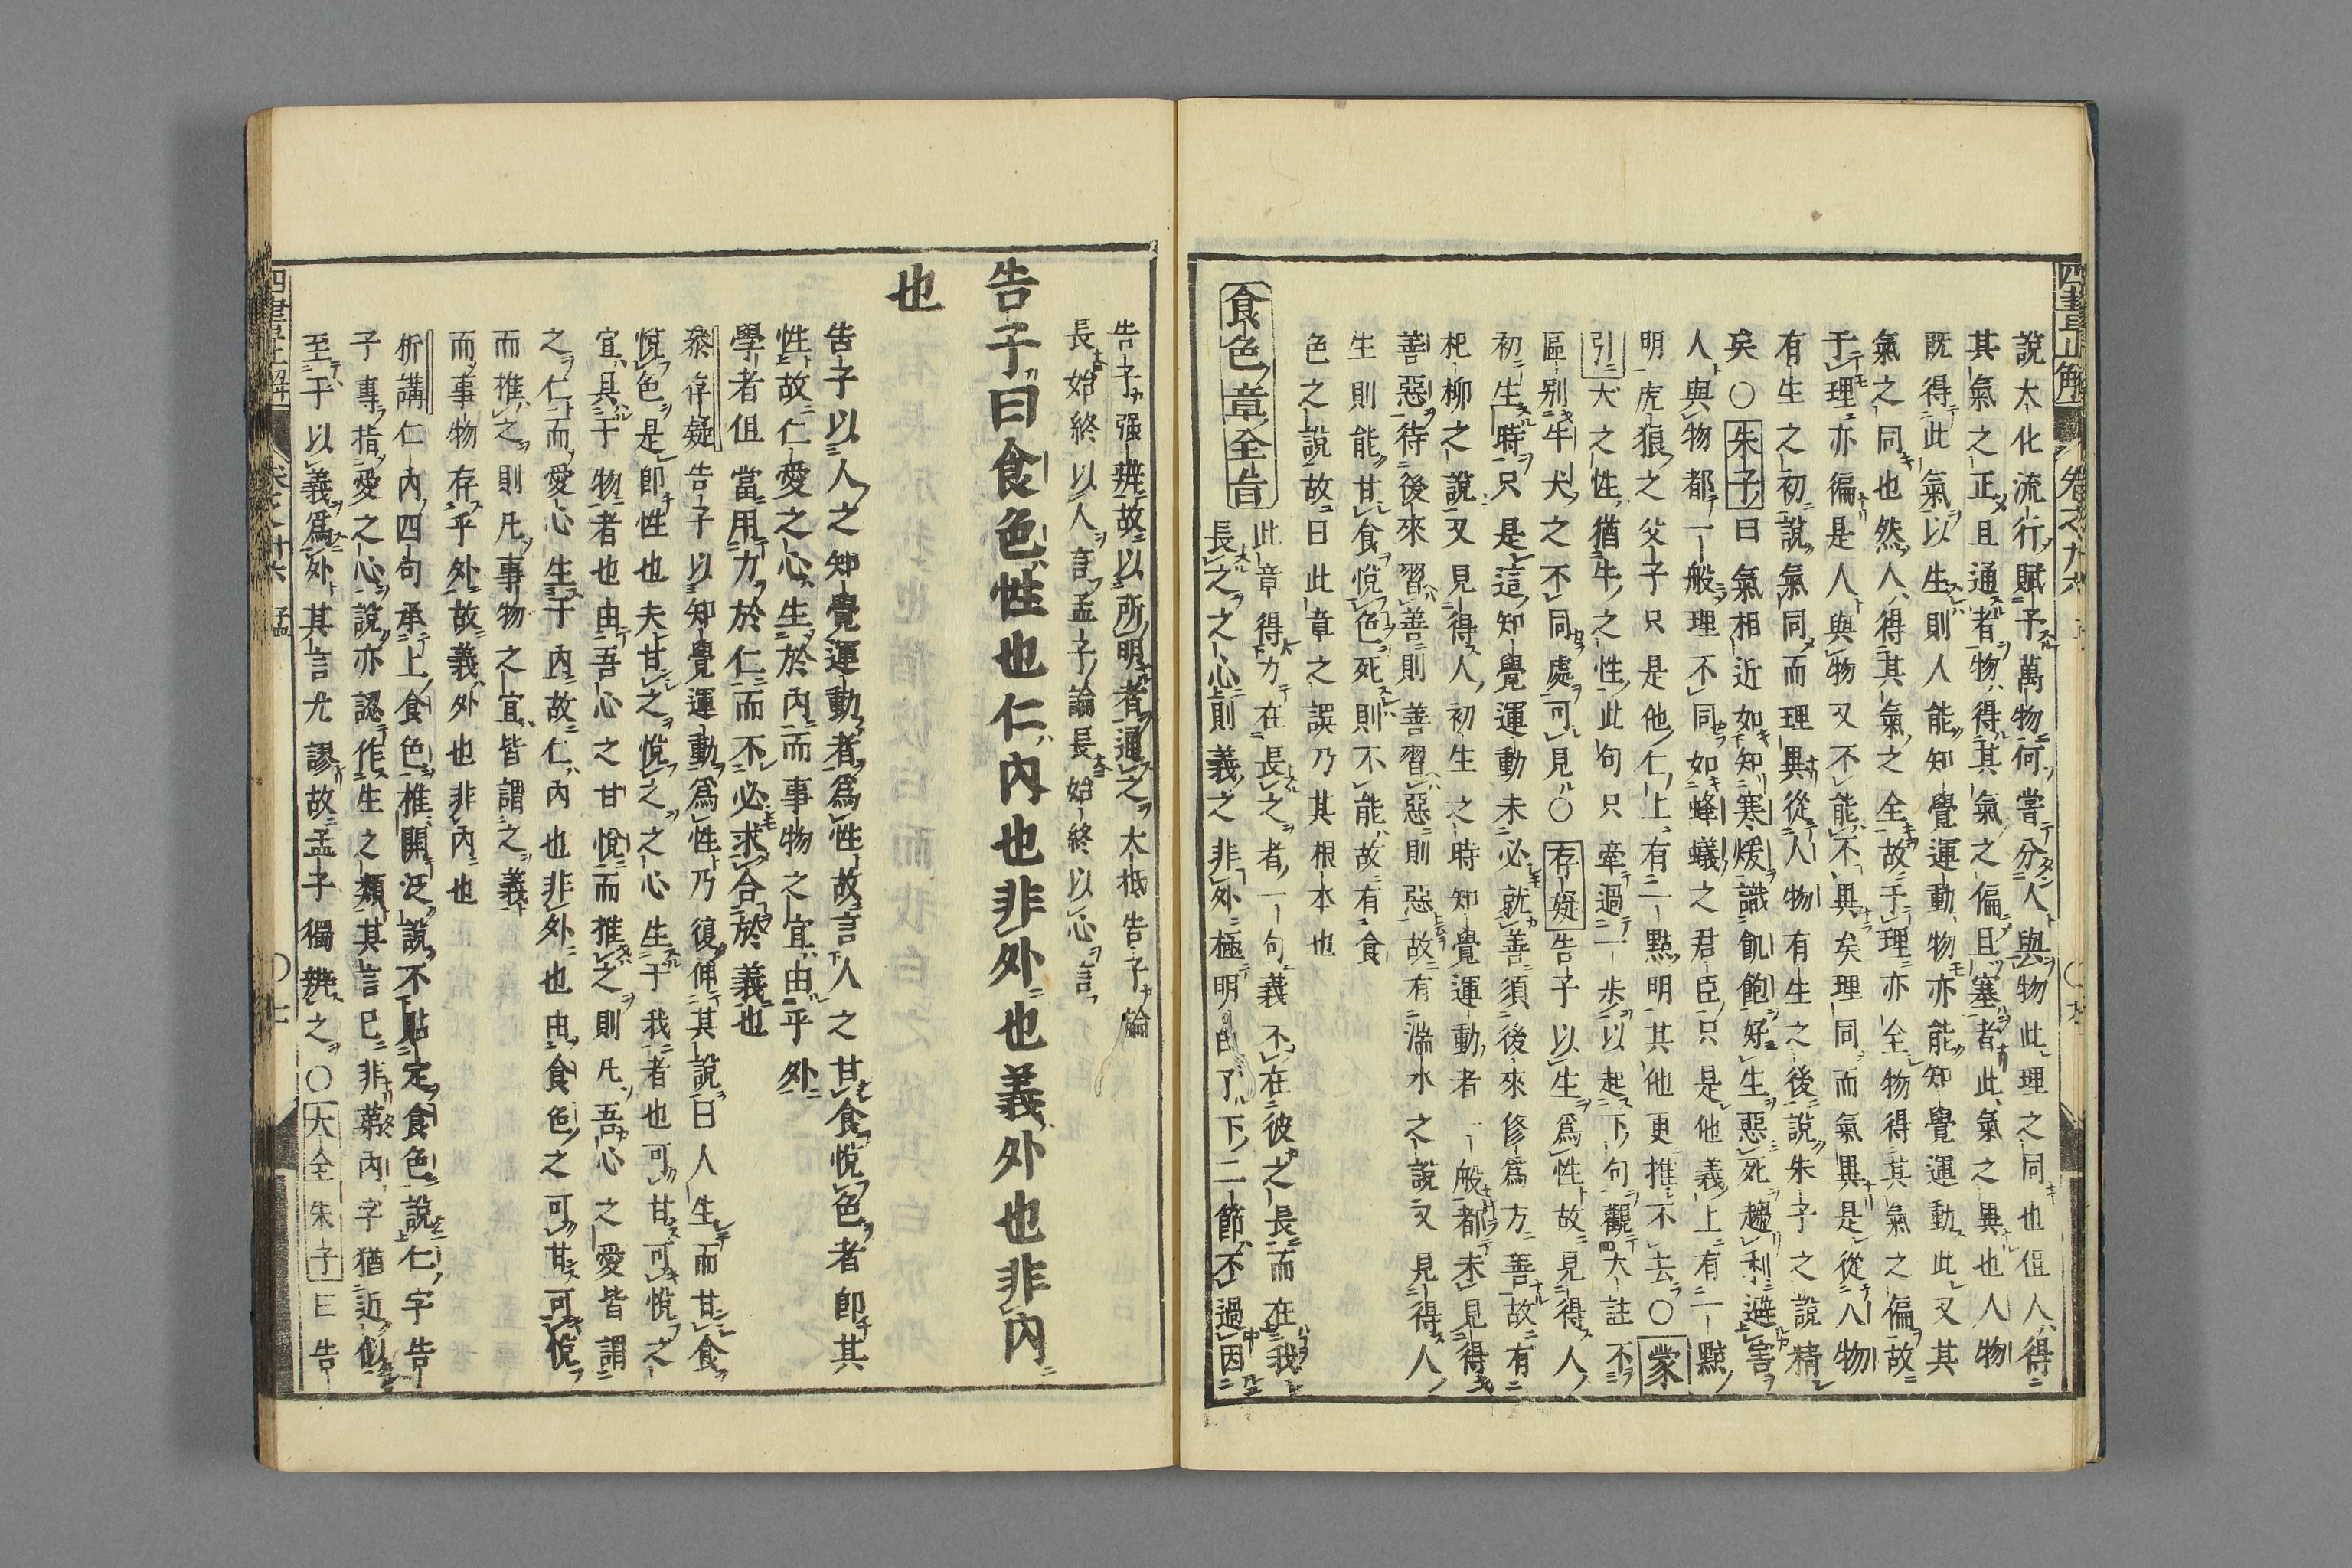 說大化流行賦予萬物何嘗分人與物此理之同也但人得
其氣之正且通者物得其氣之偏且塞者此氣之異也人物
既得此氣以生則人能知覺運動物亦能知覺運動此又其
氣之同也然人得其氣之全故于理亦全物得其氣之偏故
于理亦偏是人與物又不能不異矣理同而氣異是從人物
有生之初說氣同而理異從人物有生之後說朱子之說精
矣○朱子曰氣相近如知寒煖識飢飽好生惡死趨利避害
人與物都一般理不同如蜂蟻之君臣只是他義上有一點
明虎狼之父子只是他仁上有一點明其他更推不去○蒙
引犬之性猶牛之性此句只牽過一步以起下句觀大註不
區别牛犬之不同處可見○存疑告子以生爲性故見得人
初生時只是這知覺運動未必就善須後來修爲方善故有
杞柳之說又見得人初生之時知覺運動者一般都未見得
善惡待後來習善則善習惡則惡故有湍水之說又見得人
生則能甘食悅色死則不能故有食
色之說故曰此章之誤乃其根本也
食色章全旨
此章得力在長之者一句義不在彼之長而在我
長之之心則義之非外極明白了下二節不過因
告子强辨故以所明者通之大抵告子論
長始終以人言孟子論長始終以心言
告子曰食色性也仁內也非外也義外也非內
也
告子以人之知覺運動者爲性故言人之甘食悅色者卽其
性故仁愛之心生於內而事物之宜由乎外
學者但當用力於仁而不必求合於義也
叅存疑告子以知覺運動爲性乃復伸其說曰人生而甘食
悅色是卽性也夫甘之悅之之心生于我者也可甘可悅之
宜具于物者也由吾心之甘悅而推之則凡吾心之愛皆謂
之仁而愛心生于內故仁內也非外也由食色之可甘可悅
而推之則凡事物之宜皆謂之義
而事物存乎外故義外也非內也
析講仁內四句承上食色推開泛說不黏定食色說仁字告
子專指愛之心說亦認作生之類其言已非苐內字猶近似
至于以義爲外其言尤謬故孟子獨辨之○大全朱子曰告